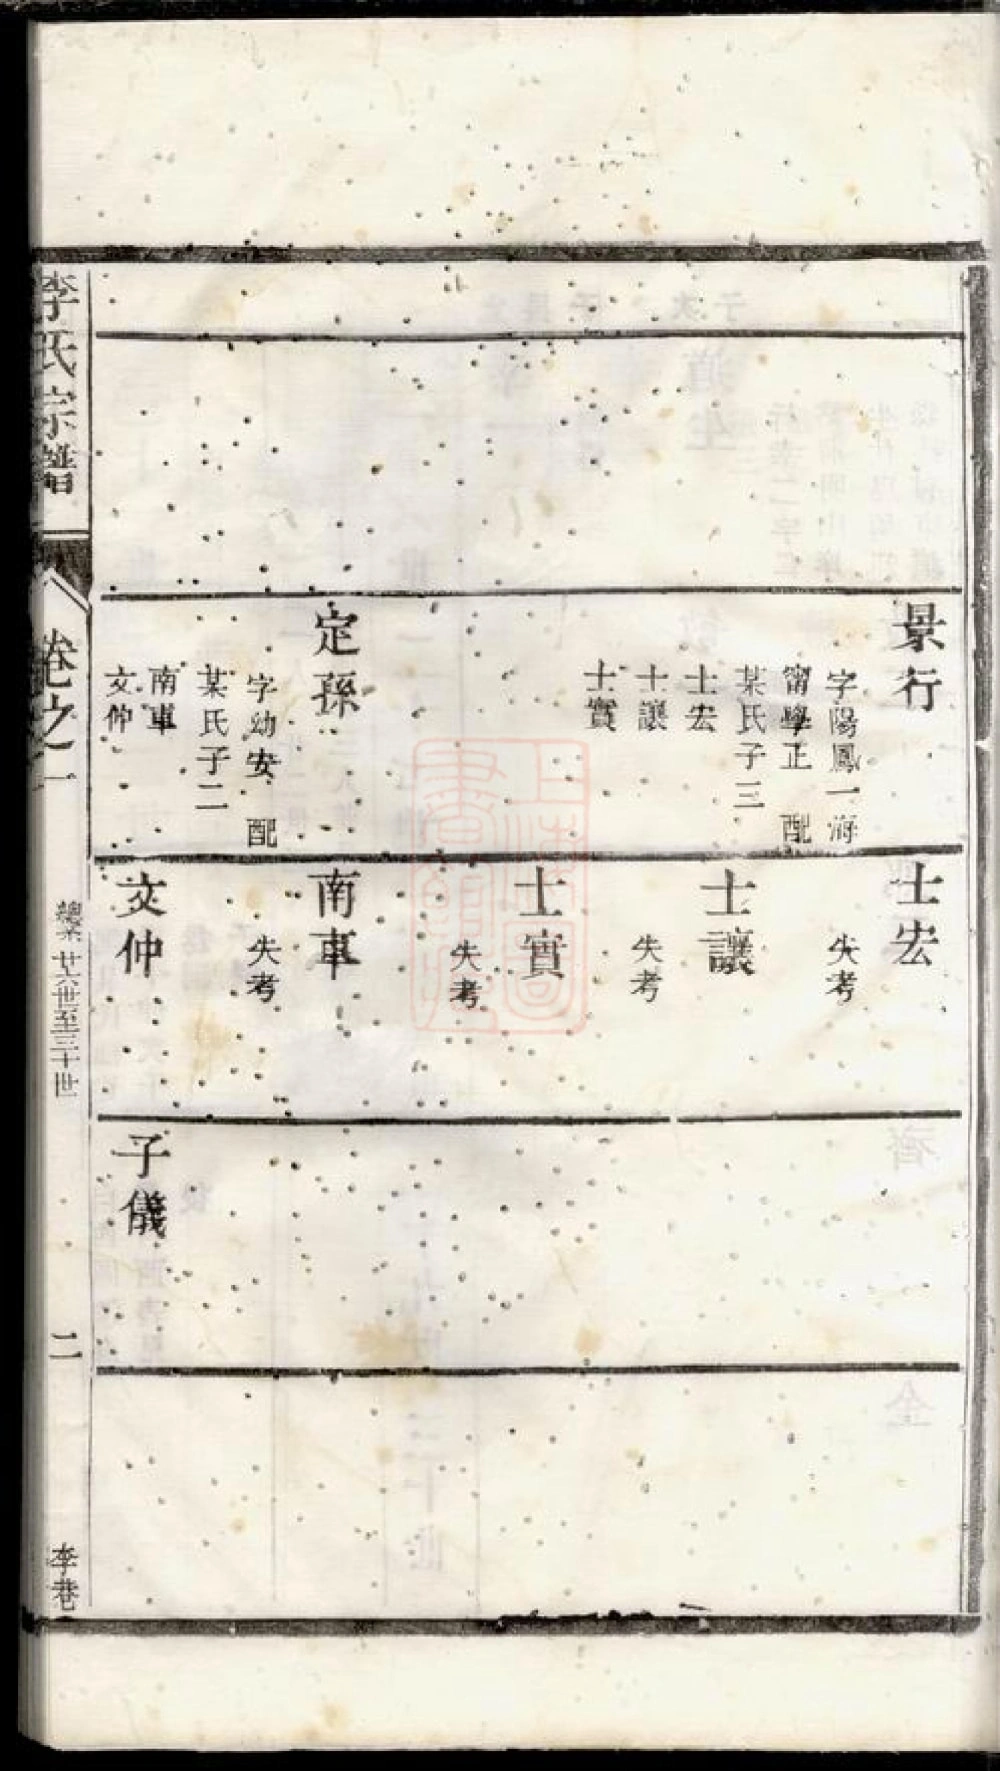 景行
字陽鳳一海
甯學正 配
某氏子三
士宏
士讓
士實
定孫
字幼安 配
某氏子二
南車
文仲
士宏
失考
士讓
失考
士實
失考
南車
失考
文仲
子儀
李氏宗譜
卷之一
總系 廿六世至三十世
二
李巷